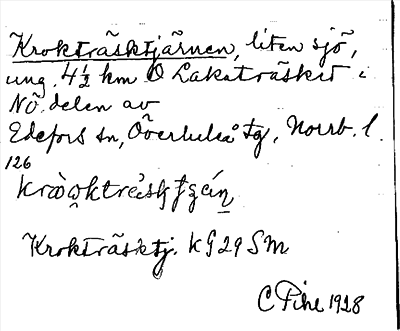 Krokträsktjärnen, liten sjö,
ung. 4½ km O Lakaträsket i
NÖ. delen av
Edefors sn, Överluleå tg, Norrb. l.
126
Krokträsktj. kg 29 SM
C Fihe 1928